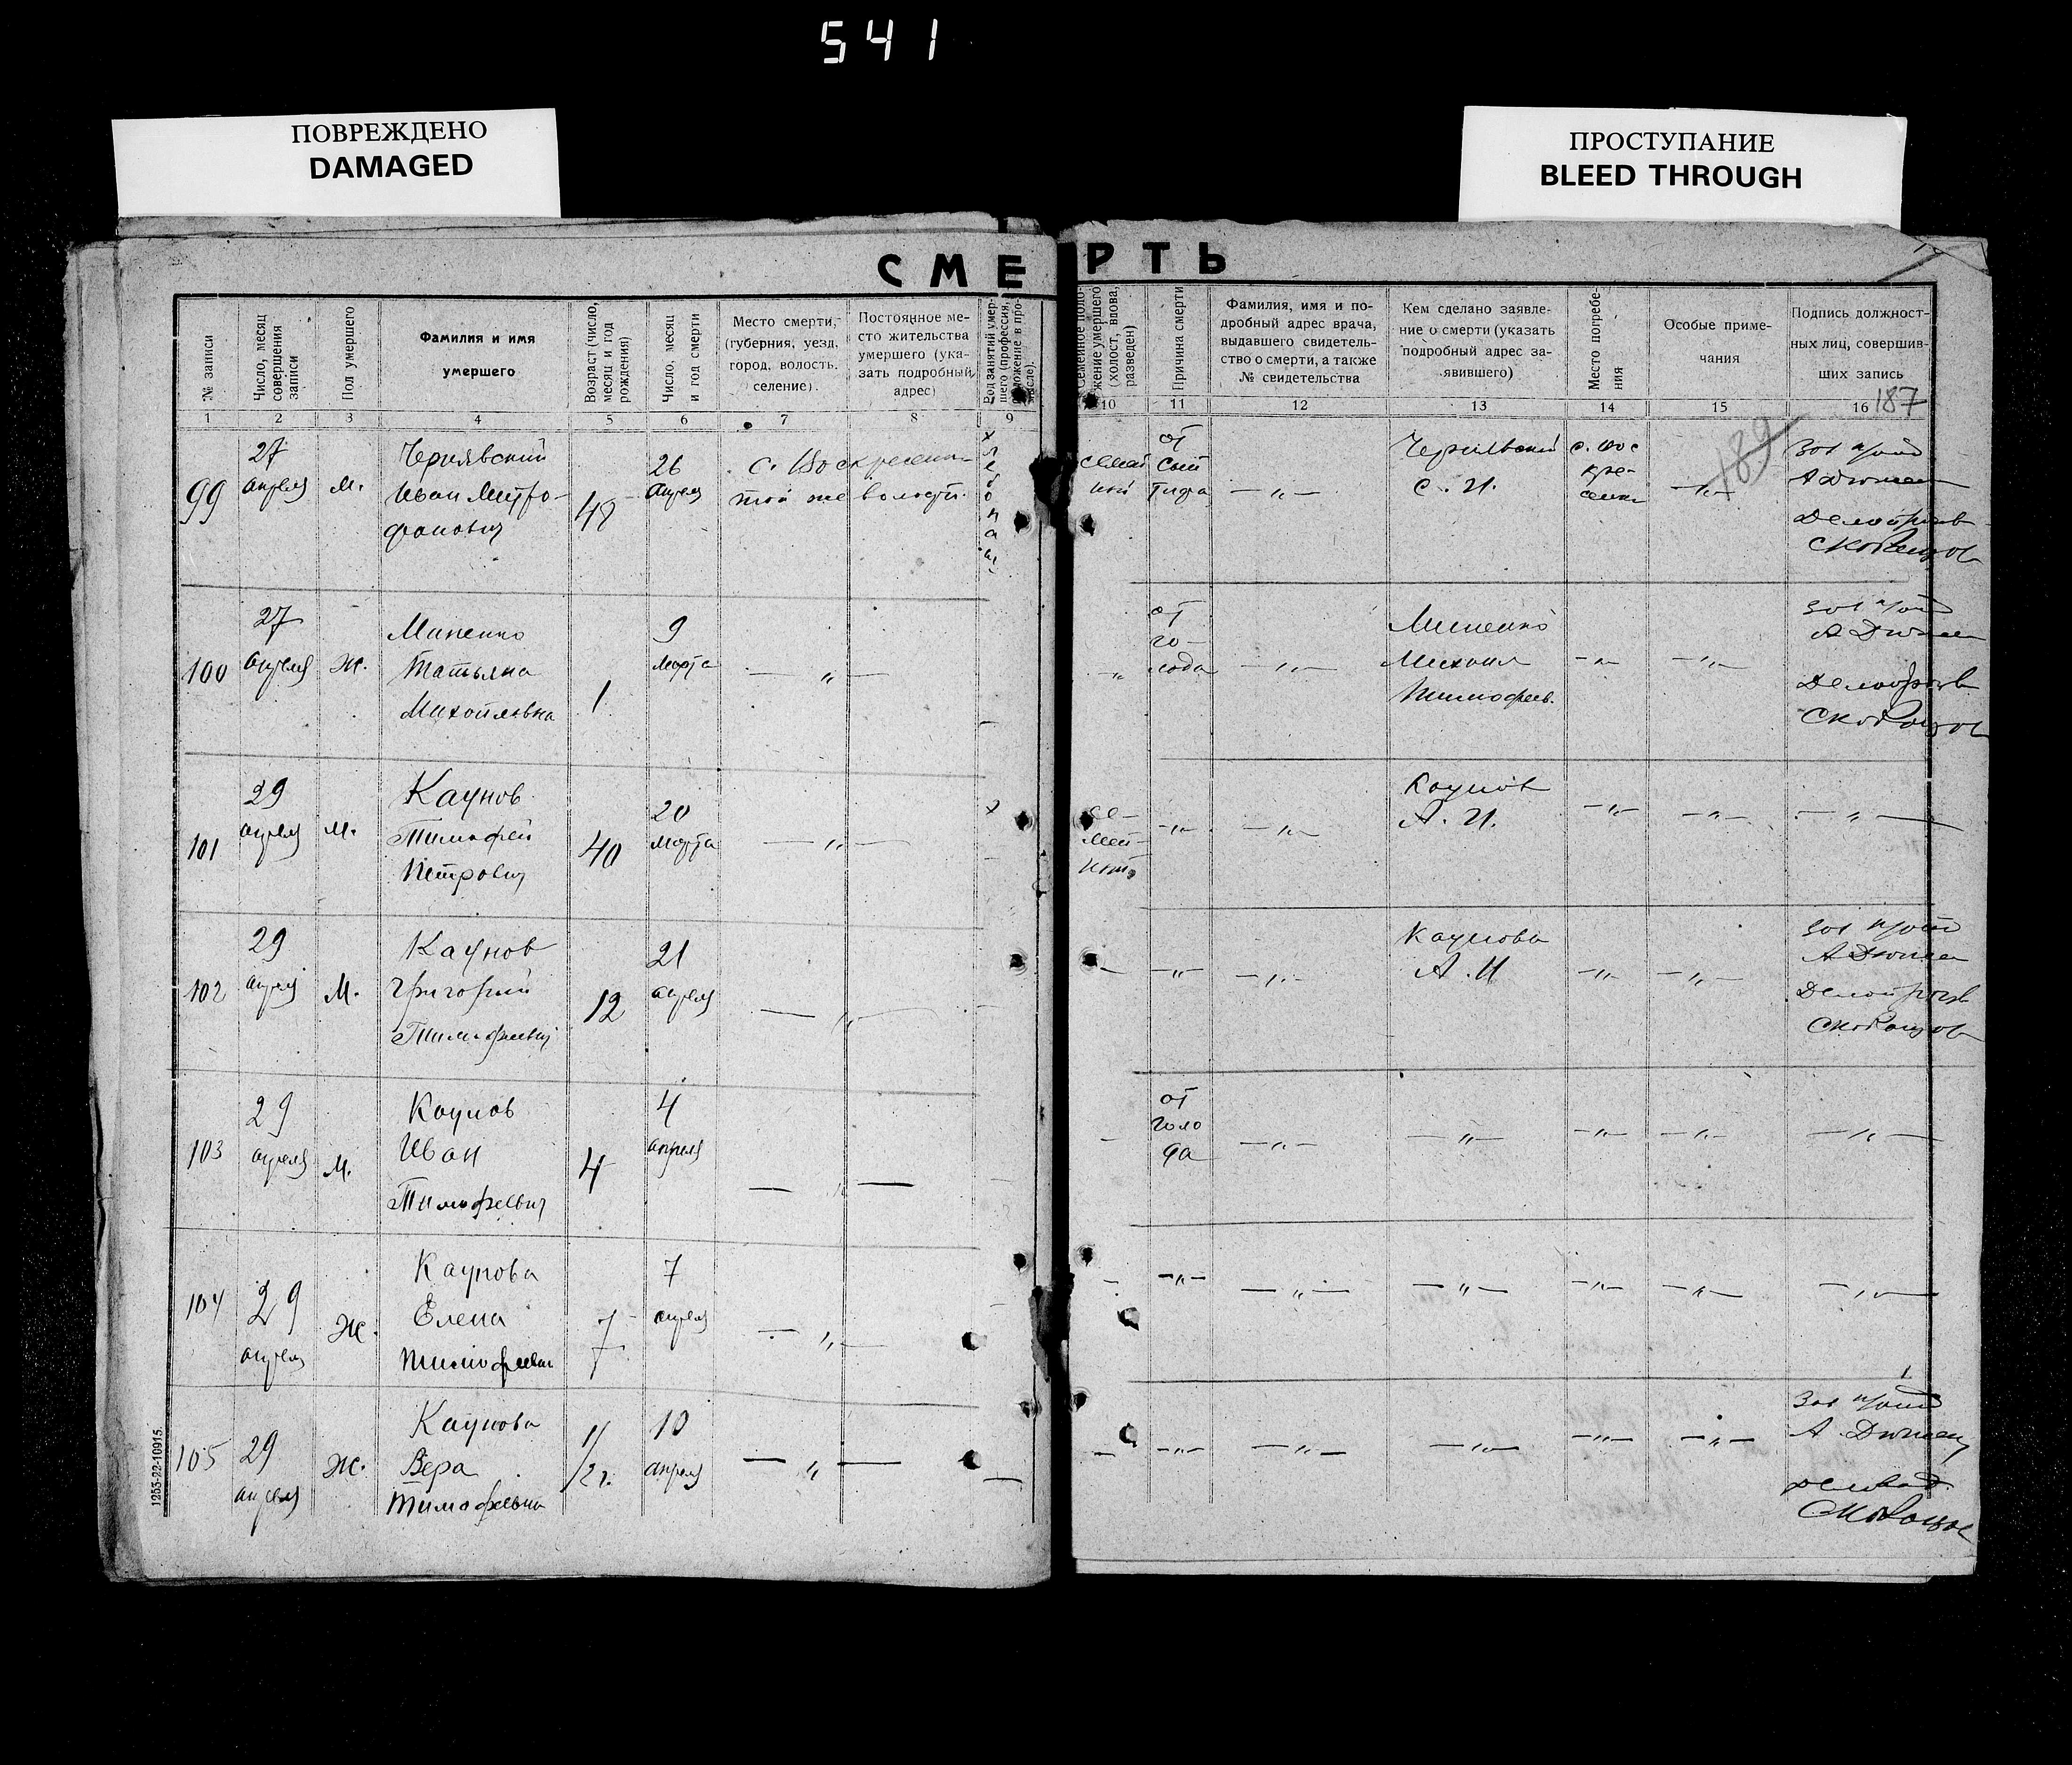 541
ПОВРЕЖДЕНО
DAMAGED
ПРОСТУПАНИЕ
BLEED THROUGH
СМЕРТЬ
№ записи
Число, месяц совершения записи
Пол умершего
Фамилия и имя умершего
Возраст (число, месяц и год рождения)
Число, месяц и год смерти
Место смерти, (губерния, уезд, город, волость, селение).
Постоянное место жительства умершего (указать подробный адрес)
Род занятий умершего (профессия, положение в промысле).
Семейное положение умершего (холост, вдова, разведен)
Причина смерти
Фамилия, имя и подробный адрес врача, выдавшего свидетельство о смерти, а также № свидетельства
Кем сделано заявление о смерти (указать подробный адрес заявившего)
Место погребения
Особые примечания
Подпись должностных лиц, совершивших запись
1 2 3 4 5 6 7 8 9 10 11 12 13 14 15 16
187
189
99
27 апреля
м.
Чернявский
Иван Митро-
фанович
48
26 апреля
с.
той же волости.
от
сып
тифа
— „ —
Чернявский
С. И.
— „ —
Скворцов
100
27 апреля
Ж.
Миненко
Татьяна
Михайловна
1
9 марта
— „ —
„
от
го-
лода
— „ —
Миненко
Михаил
Тимофеев.
— „ —
— „ —
Скворцов
101
29 апреля
м.
Каунов
Тимофей
Петрович
40
20 марта
— „ —
се-
мей-
— „ —
— „ —
Каунов
А. И.
— „ —
— „ —
— „ —
102
29 апреля
М.
Каунов
Григорий
Тимофеевич
12
21 апреля
— „ —
— „ —
— „ —
Каунова
А. И
— „ —
— „ —
Скворцов
103
29 апреля
М.
Каунов
Иван
Тимофеевич
4
4 апреля
— „ —
от
голо
да
— „ —
— „ —
— „ —
— „ —
— „ —
104
29 апреля
Ж.
Каунова
Елена
Тимофеевна
7
7 апреля
— „ —
— „ —
— „ —
— „ —
— „ —
— „ —
— „ —
105
29 апреля
Ж.
Каунова
Вера
Тимофеевна
1/2 г.
10 апреля
— „ —
— „ —
— „ —
— „ —
— „ —
— „ —
Скворцов
1253-22-10915.